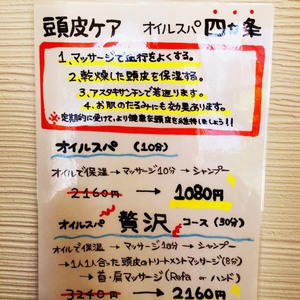 頭皮ケア オイルスパ 四カ条
1.マッサージで血行をよくする。
2.乾燥した頭皮を保湿する。
3.アスタキサンチンで若返ります。
4.お肌のたるみにも効果あります。
※定期的に受けて、より健康な頭皮を維持しましょう!!
オイルスパ (10分)
オイルで保湿→マッサージ10分→シャンプー
2160円→1080円
オイルスパ 贅沢 コース (30分)
オイルで保湿→マッサージ10分→シャンプー
→1人1人合った頭皮のトリートメントマッサージ(8分)
→首・肩マッサージ(Refa or ハンド)
3240円→2160円